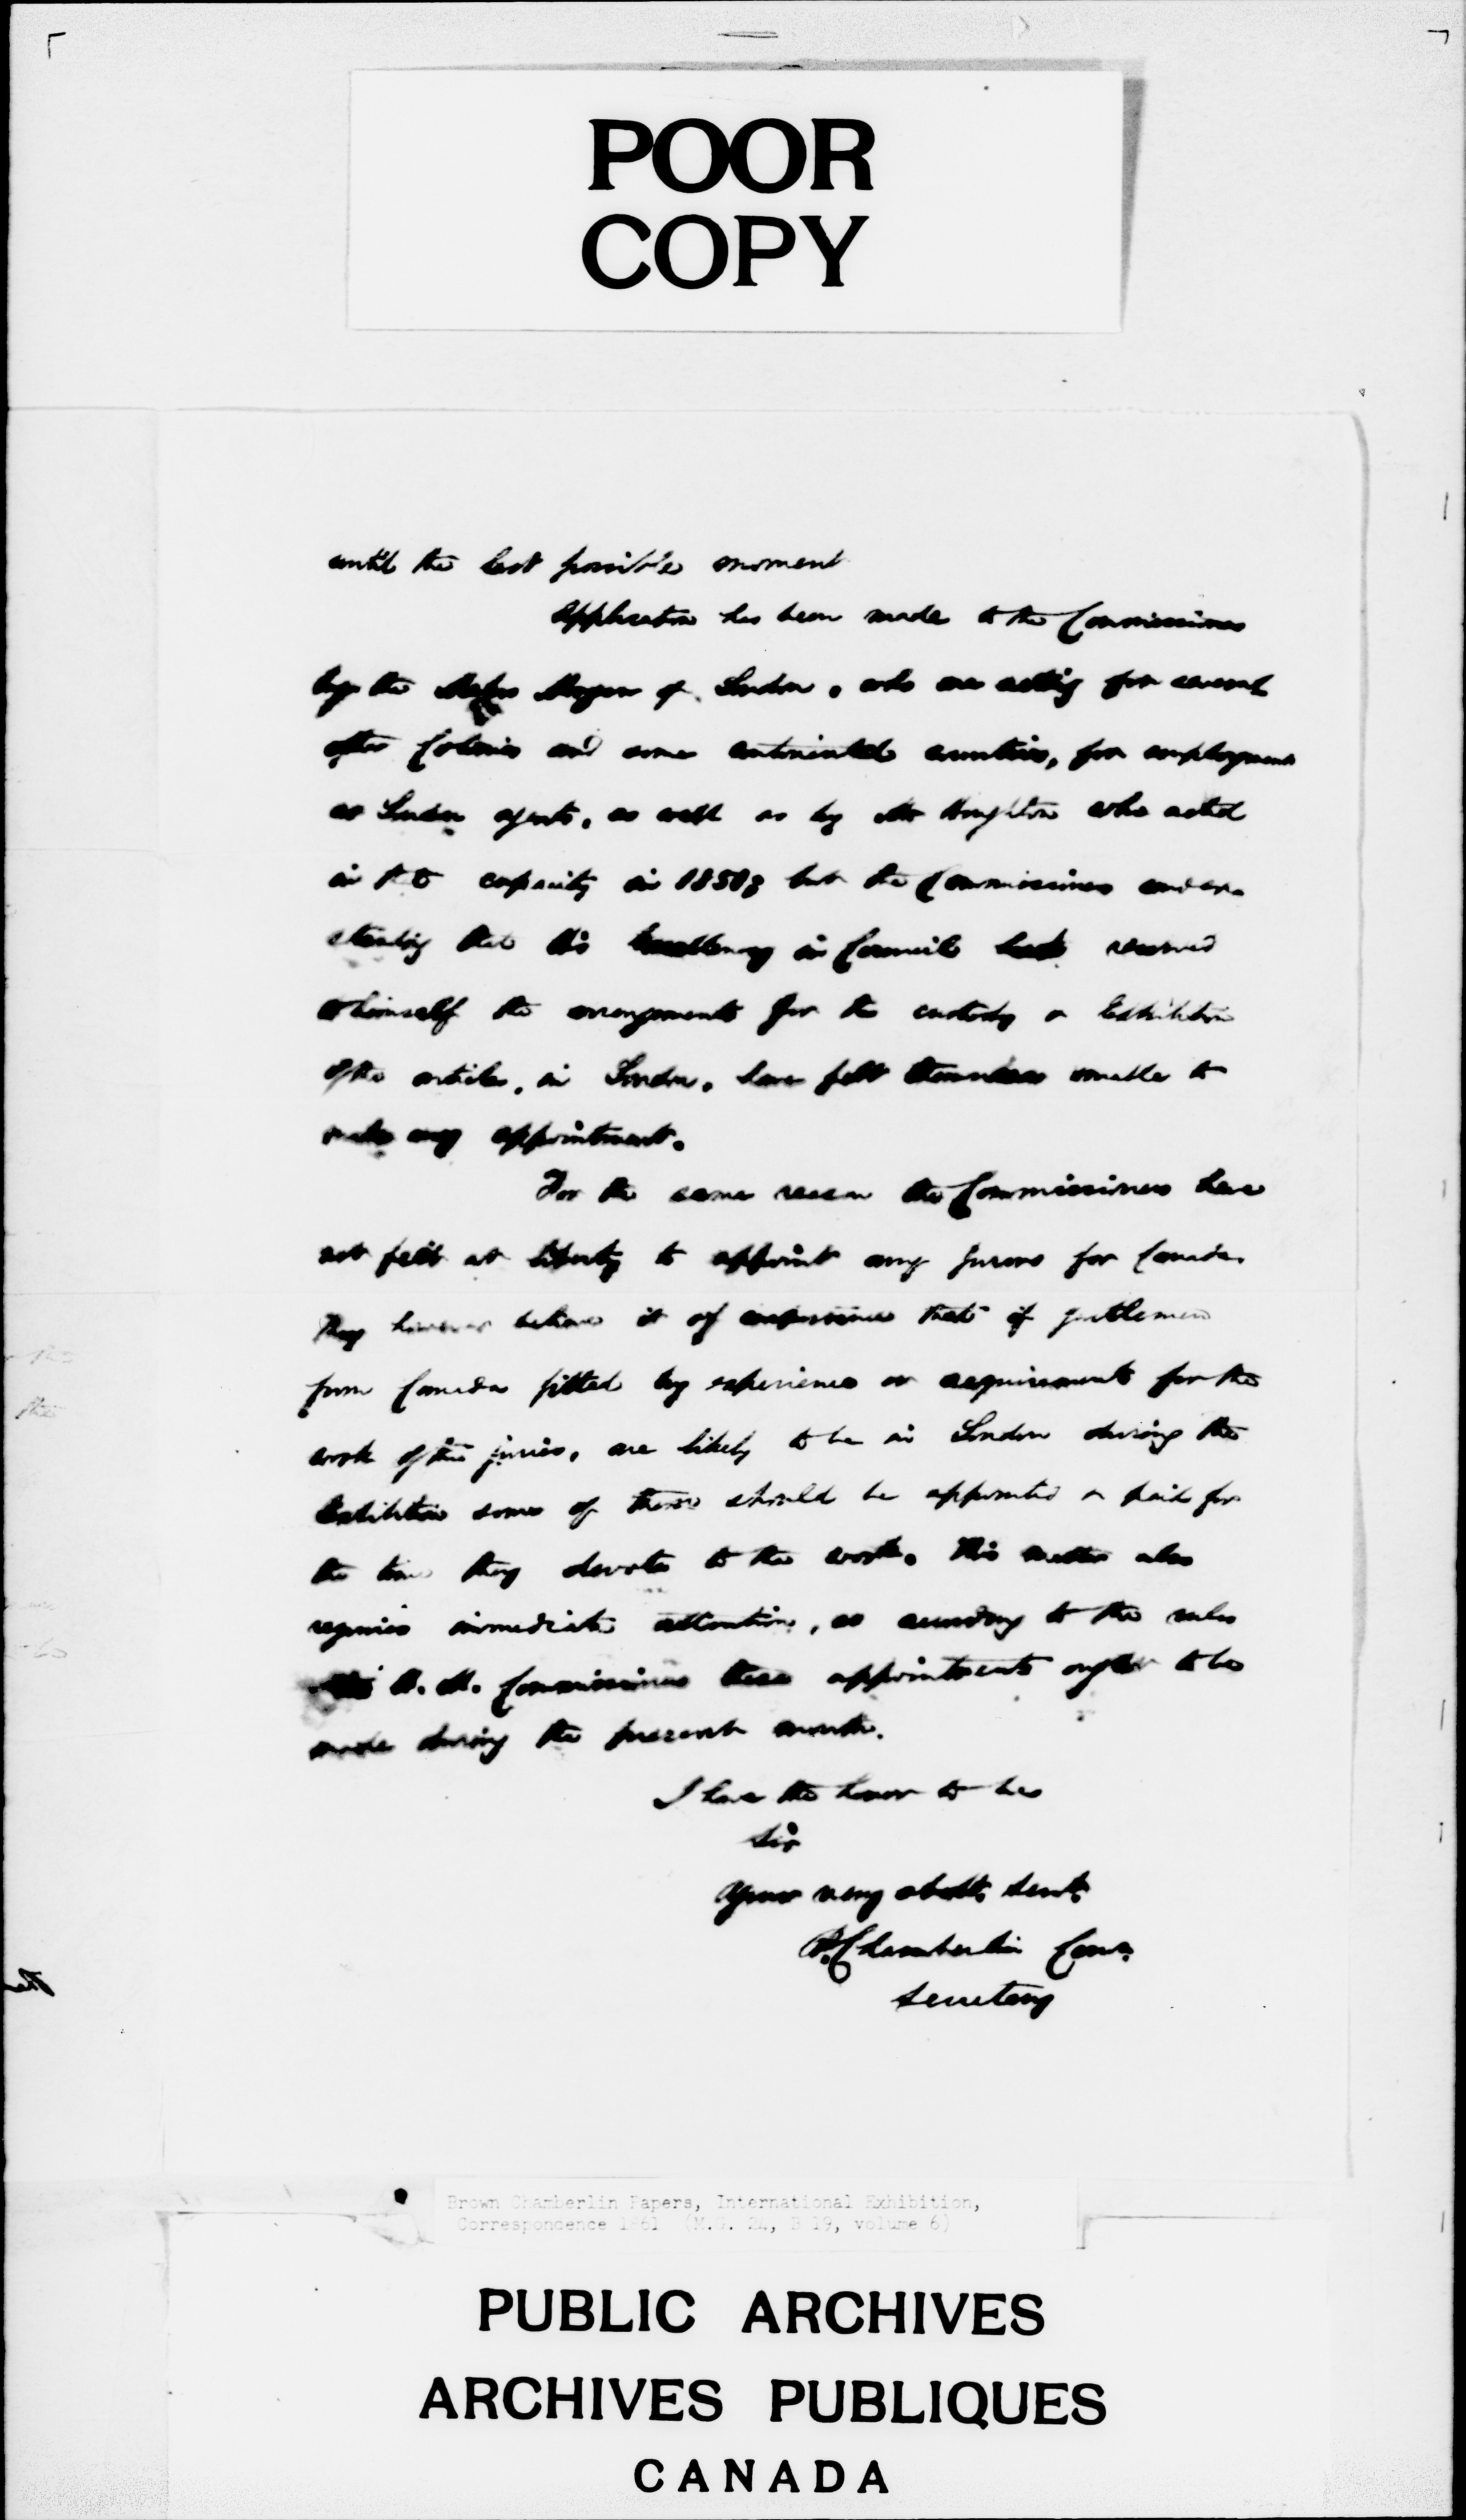 POOR
COPY
until the last possible moment
Application has been made to the Commissioners
by the of London, who are acting for several
other Colonies and some continental countries, for employment
as London agents, as well as by Mr Houghton who acted
in that capacity in but the Commissioners under-
standing that His Excellency in Council had reserved
to himself the arrangements for the custody & Exhibition
of the articles, in London, have felt themselves unable to
make any appointment.
For the same reason the Commissioners have
not felt at liberty to appoint any Jurors for Canada.
They however believe it of importance that if gentlemen
from Canada fitted by experience or acquirements for the
work of the juries, are likely to be in London during the
Exhibition some of them should be appointed & paid for
the time they devote to the work. This matter also
requires immediate attention, as according to the rules
H. M. Commissioners these appointments ought to be
made during the present month.
I have the honor to be
Sir
Your very obedt. Servt.
B. Chamberlin
Secretary
the
the
Brown Chamberlin Papers, International Exhibition,
Correspondence 1861 (M.G. 24, B 19, volume 6)
PUBLIC ARCHIVES
ARCHIVES PUBLIQUES
CANADA